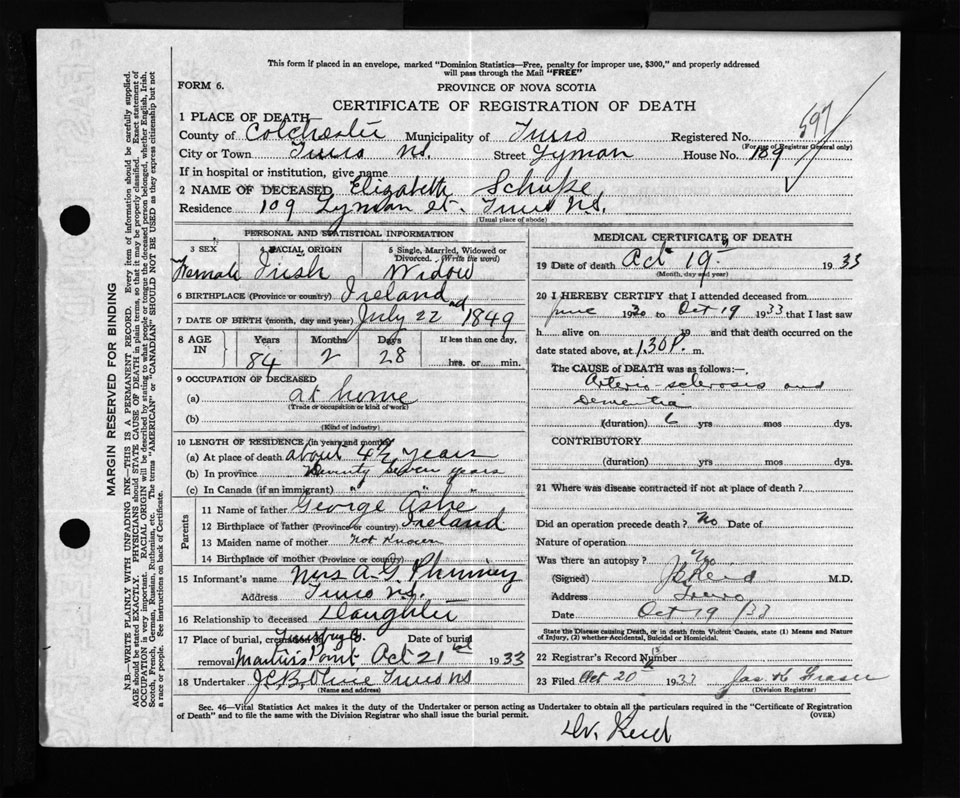 This form if placed in an envelope, marked "Dominion Statistics—Free, penalty for improper use, $300," and properly addressed
will pass through the Mail "FREE"
FORM 6.
PROVINCE OF NOVA SCOTIA
CERTIFICATE OF REGISTRATION OF DEATH
1 PLACE OF DEATH
County of Colchester Municipality of Truro Registered No. 597
(For use of Registrar General only)
City or Town Truro N.S. Street Lyman House No. 109
If in hospital or institution, give name
2 NAME OF DECEASED Elizabeth Schupe
Residence 109 Lyman St. Truro N.S.
(Usual place of abode)
PERSONAL AND STATISTICAL INFORMATION
3 SEX 4 RACIAL ORIGIN 5 Single, Married, Widowed or
Divorced. (Write the word)
Female Irish Widow
6 BIRTHPLACE (Province or country) Ireland
7 DATE OF BIRTH (month, day and year) July 22 nd 1849
8 AGE IN Years Months Days If less than one day,
84 2 28 hrs. or min.
9 OCCUPATION OF DECEASED
(a) at home
(Trade or occupation or kind of work)
(b)
(Kind of industry)
10 LENGTH OF RESIDENCE (in years and months)
(a) At place of death about 4½ years
(b) In province Seventy Seven years
(c) In Canada (if an immigrant) " " "
Parents
11 Name of father George Ashe
12 Birthplace of father (Province or country) Ireland
13 Maiden name of mother not known
14 Birthplace of mother (Province or country)
15 Informant's name Mrs A. G. Phinney
Address Truro N.S.
16 Relationship to deceased Daughter
17 Place of burial, cremation or Date of burial
removal Martins Point Oct 21 st 1933
18 Undertaker J.C.B. Olive Truro NS
(Name and address)
MEDICAL CERTIFICATE OF DEATH
19 Date of death Oct 19 1933
(Month, day and year)
20 I HEREBY CERTIFY that I attended deceased from
June 1930 to Oct 19 1933 that I last saw
h alive on 19 and that death occurred on the
date stated above, at 1.30 P. m.
The CAUSE of DEATH was as follows:—
Arterio-sclerosis and
Dementia
(duration) 6 yrs mos dys.
CONTRIBUTORY
(duration) yrs mos dys.
21 Where was disease contracted if not at place of death?
Did an operation precede death? No Date of
Nature of operation
Was there an autopsy? No
(Signed) J B Reid M.D.
Address Truro
Date Oct 19 /33
State the Disease causing Death, or in death from Violent Causes, state (1) Means and Nature
of Injury, (2) whether Accidental, Suicidal or Homicidal.
22 Registrar's Record Number
23 Filed Oct 20 1933 Jas K Fraser
(Division Registrar)
Sec. 46—Vital Statistics Act makes it the duty of the Undertaker or person acting as Undertaker to obtain all the particulars required in the "Certificate of Registration
of Death" and to file the same with the Division Registrar who shall issue the burial permit. (OVER)
Dr. Reid
MARGIN RESERVED FOR BINDING
N.B.—WRITE PLAINLY WITH UNFADING INK—THIS IS A PERMANENT RECORD. Every item of information should be carefully supplied.
AGE should be stated EXACTLY. PHYSICIANS should STATE CAUSE OF DEATH in plain terms, so that it may be properly classified. Exact statement of
OCCUPATION is very important. RACIAL ORIGIN will be described by stating to what people or tongue the deceased person belonged, whether English, Irish,
Scotch, French, German, Russian, Ruthenian, etc. The terms "AMERICAN" or "CANADIAN" SHOULD NOT BE USED as they express citizenship but not
a race or people. See instructions on back of Certificate.